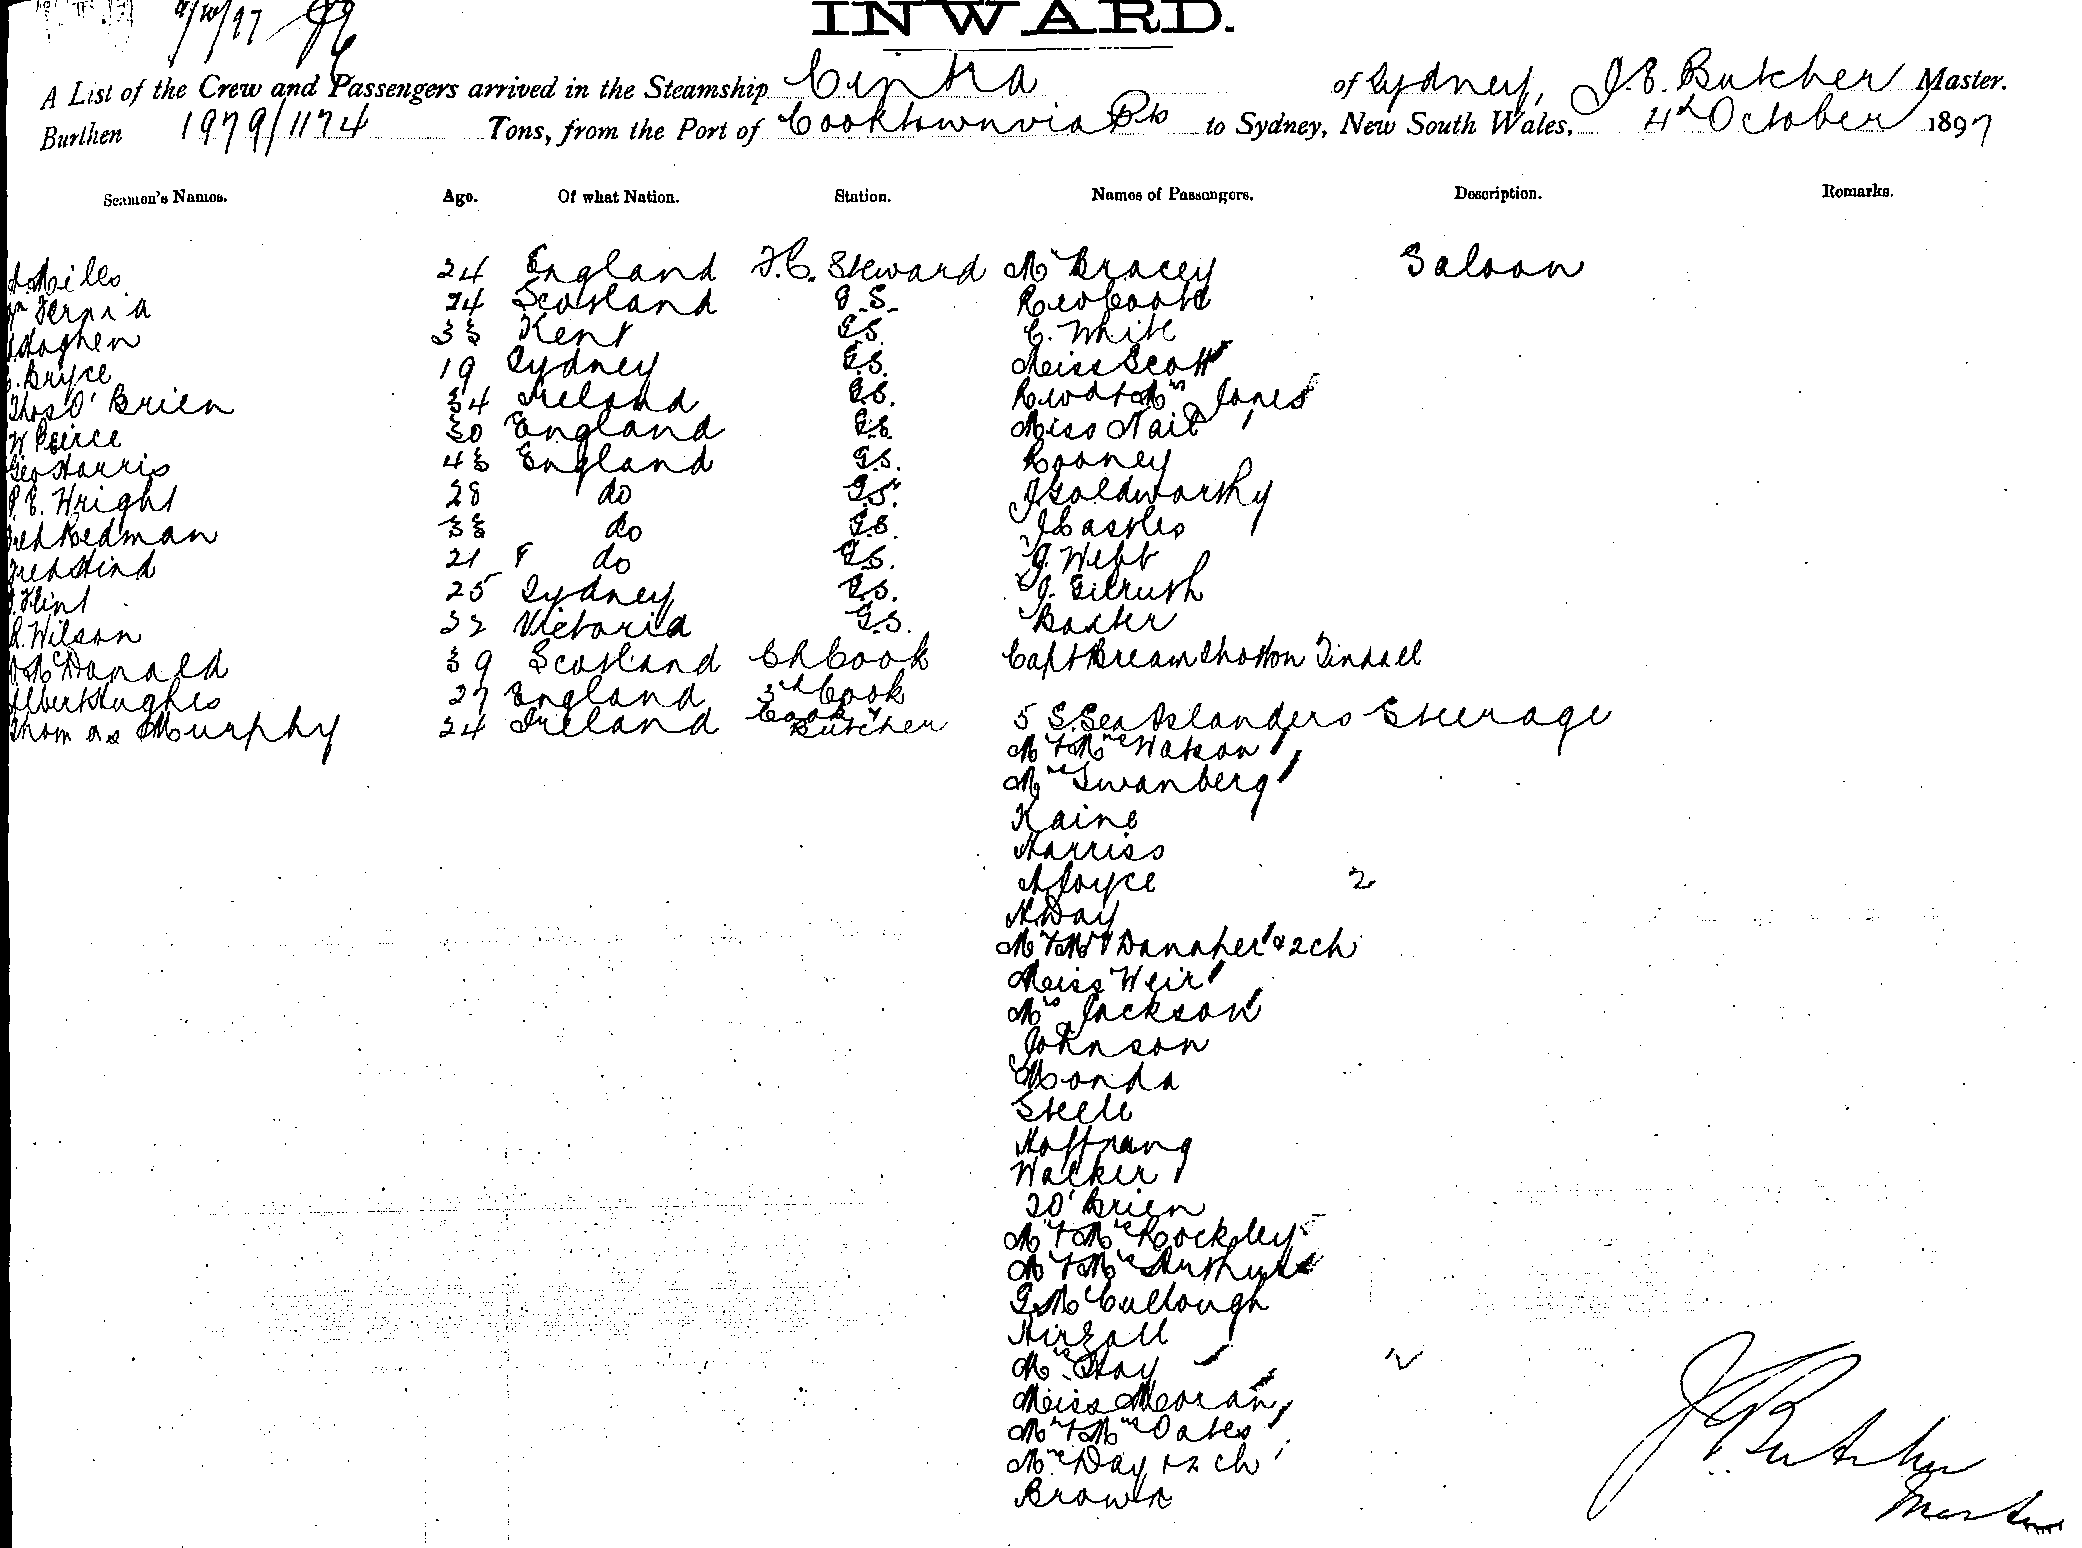 4/10/97
INWARD.
A List of the Crew and Passengers arrived in the Steamship Cintra of Sydney, J. E. Butcher Master.
Burthen 1979/1174 Tons, from the Port of Cooktown via Pts to Sydney, New South Wales, 4th October 1897
Seamen's Names. Age. Of what Nation. Station. Names of Passengers. Description. Remarks.
Miles 24 England F.C. Steward Mr Bracey Saloon
Fernia 24 Scotland G.S. Rev
33 Kent G.S. C. White
Bryce 19 Sydney G.S. Miss Scott
Thos O'Brien 34 Ireland G.S. Revd & Mrs Jones
W Peirce 30 England G.S. Miss Nail
Geo Harris 43 England G.S. Rooney
P. E. Wright 28 do G.S. J Goldworthy
Fred Redman 33 do G.S. J Castles
Fred Hind 21 do G.S. J. Webb
Flint 25 Sydney G.S. J. Gilruth
R. Wilson 22 Victoria G.S. Baxter
McDonald 39 Scotland Ch Cook Capt Bream Shotton Tindall
Albert Hughes 27 England 3rd Cook
Thomas Murphy 24 Ireland Cook & Butcher 5 S. Sea Islanders Steerage
Mr & Mrs Watson
Mrs Swanberg
Kaine
Harriss
A Joyce 2
H Day
Mr & Mrs Danaher & 2 ch
Miss Weir
Mrs Jackson
Johnson
Monda
Steele
Hoffnung
Walker
2 O'Brien
Mr & Mrs Rockley
Mr & Mrs
G. McCullough
Hirzall
Mrs Hay 2
Miss Moran
Mr & Mrs Oates
Mrs Day & 2 ch
Brown
J E Butcher
Master